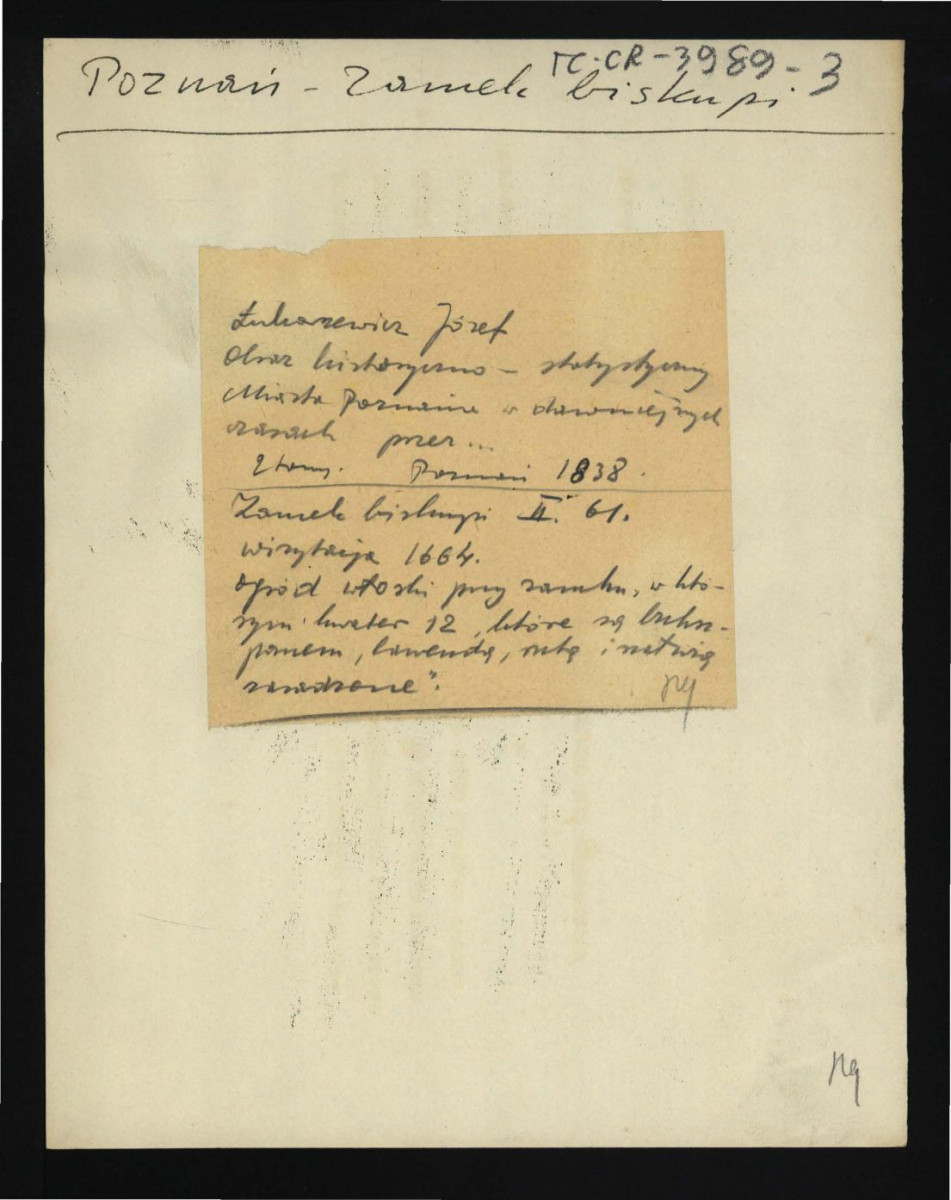 TC-CR-3989-3
Poznań - Zamek biskupi
Łukaszewicz Józef
Obraz historyczno - statystyczny
Miasta Poznania w dawniejszych
czasach przez...
2 tomy. Poznań 1838.
Zamek biskupi II. 61.
wizytacja 1664.
ogród włoski przy zamku, w któ-
rym kwater 12, które są buksz-
panem, lawendą, rutą i
sadzone".